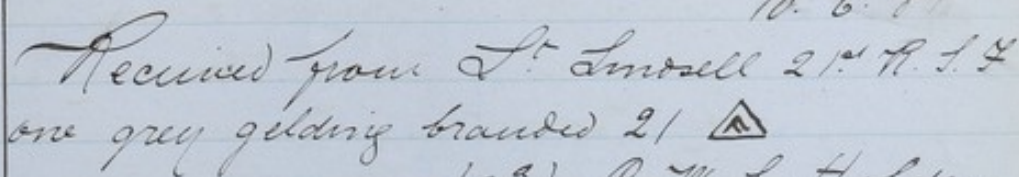 Received from Lt. Lindsell 21st R. S. F
one grey gelding branded 21